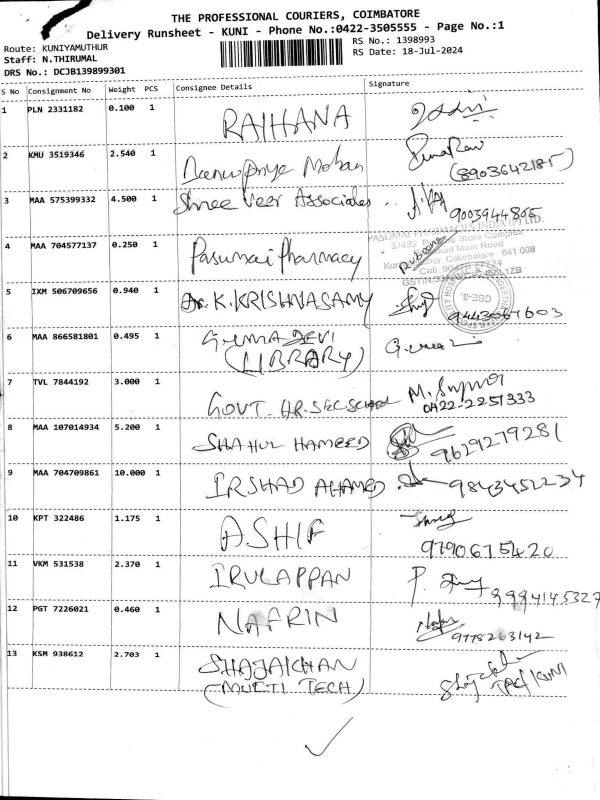 THE PROFESSIONAL COURIERS, COIMBATORE
Delivery Runsheet - KUNI - Phone No.:0422-3505555 - Page No.:1
Route: KUNIYAMUTHUR
Staff: N.THIRUMAL
DRS No.: DCJB139899301
RS No.: 1398993
RS Date: 18-Jul-2024
S No Consignment No Weight PCS Consignee Details Signature
1 PLN 2331182 0.100 1 RAIHANA
2 KMU 3519346 2.540 1 Mohan
(8903642185)
3 MAA 575399332 4.500 1 Shree Veer Associates
9003944805
4 MAA 704577137 0.250 1 Pasumai Pharmacy
5 IXM 506709656 0.940 1 Dr. K. KRISHNASAMY
6 MAA 866581801 0.495 1 GUMADEVI
(LIBRARY)
7 TVL 7844192 3.000 1 GOVT. HR. SEC. School
0422-2251333
8 MAA 107014934 5.200 1 SHAHUL HAMEED 9629279281
9 MAA 704709861 10.000 1 IRSHAD AHAMED 9843452234
10 KPT 322486 1.175 1 ASHIF
9790675420
11 VKM 531538 2.370 1 IRULAPPAN
12 PGT 7226021 0.460 1 NAFRIN
9778263142
13 KSM 938612 2.703 1 SHAJAKHAN
(MULTI TECH)